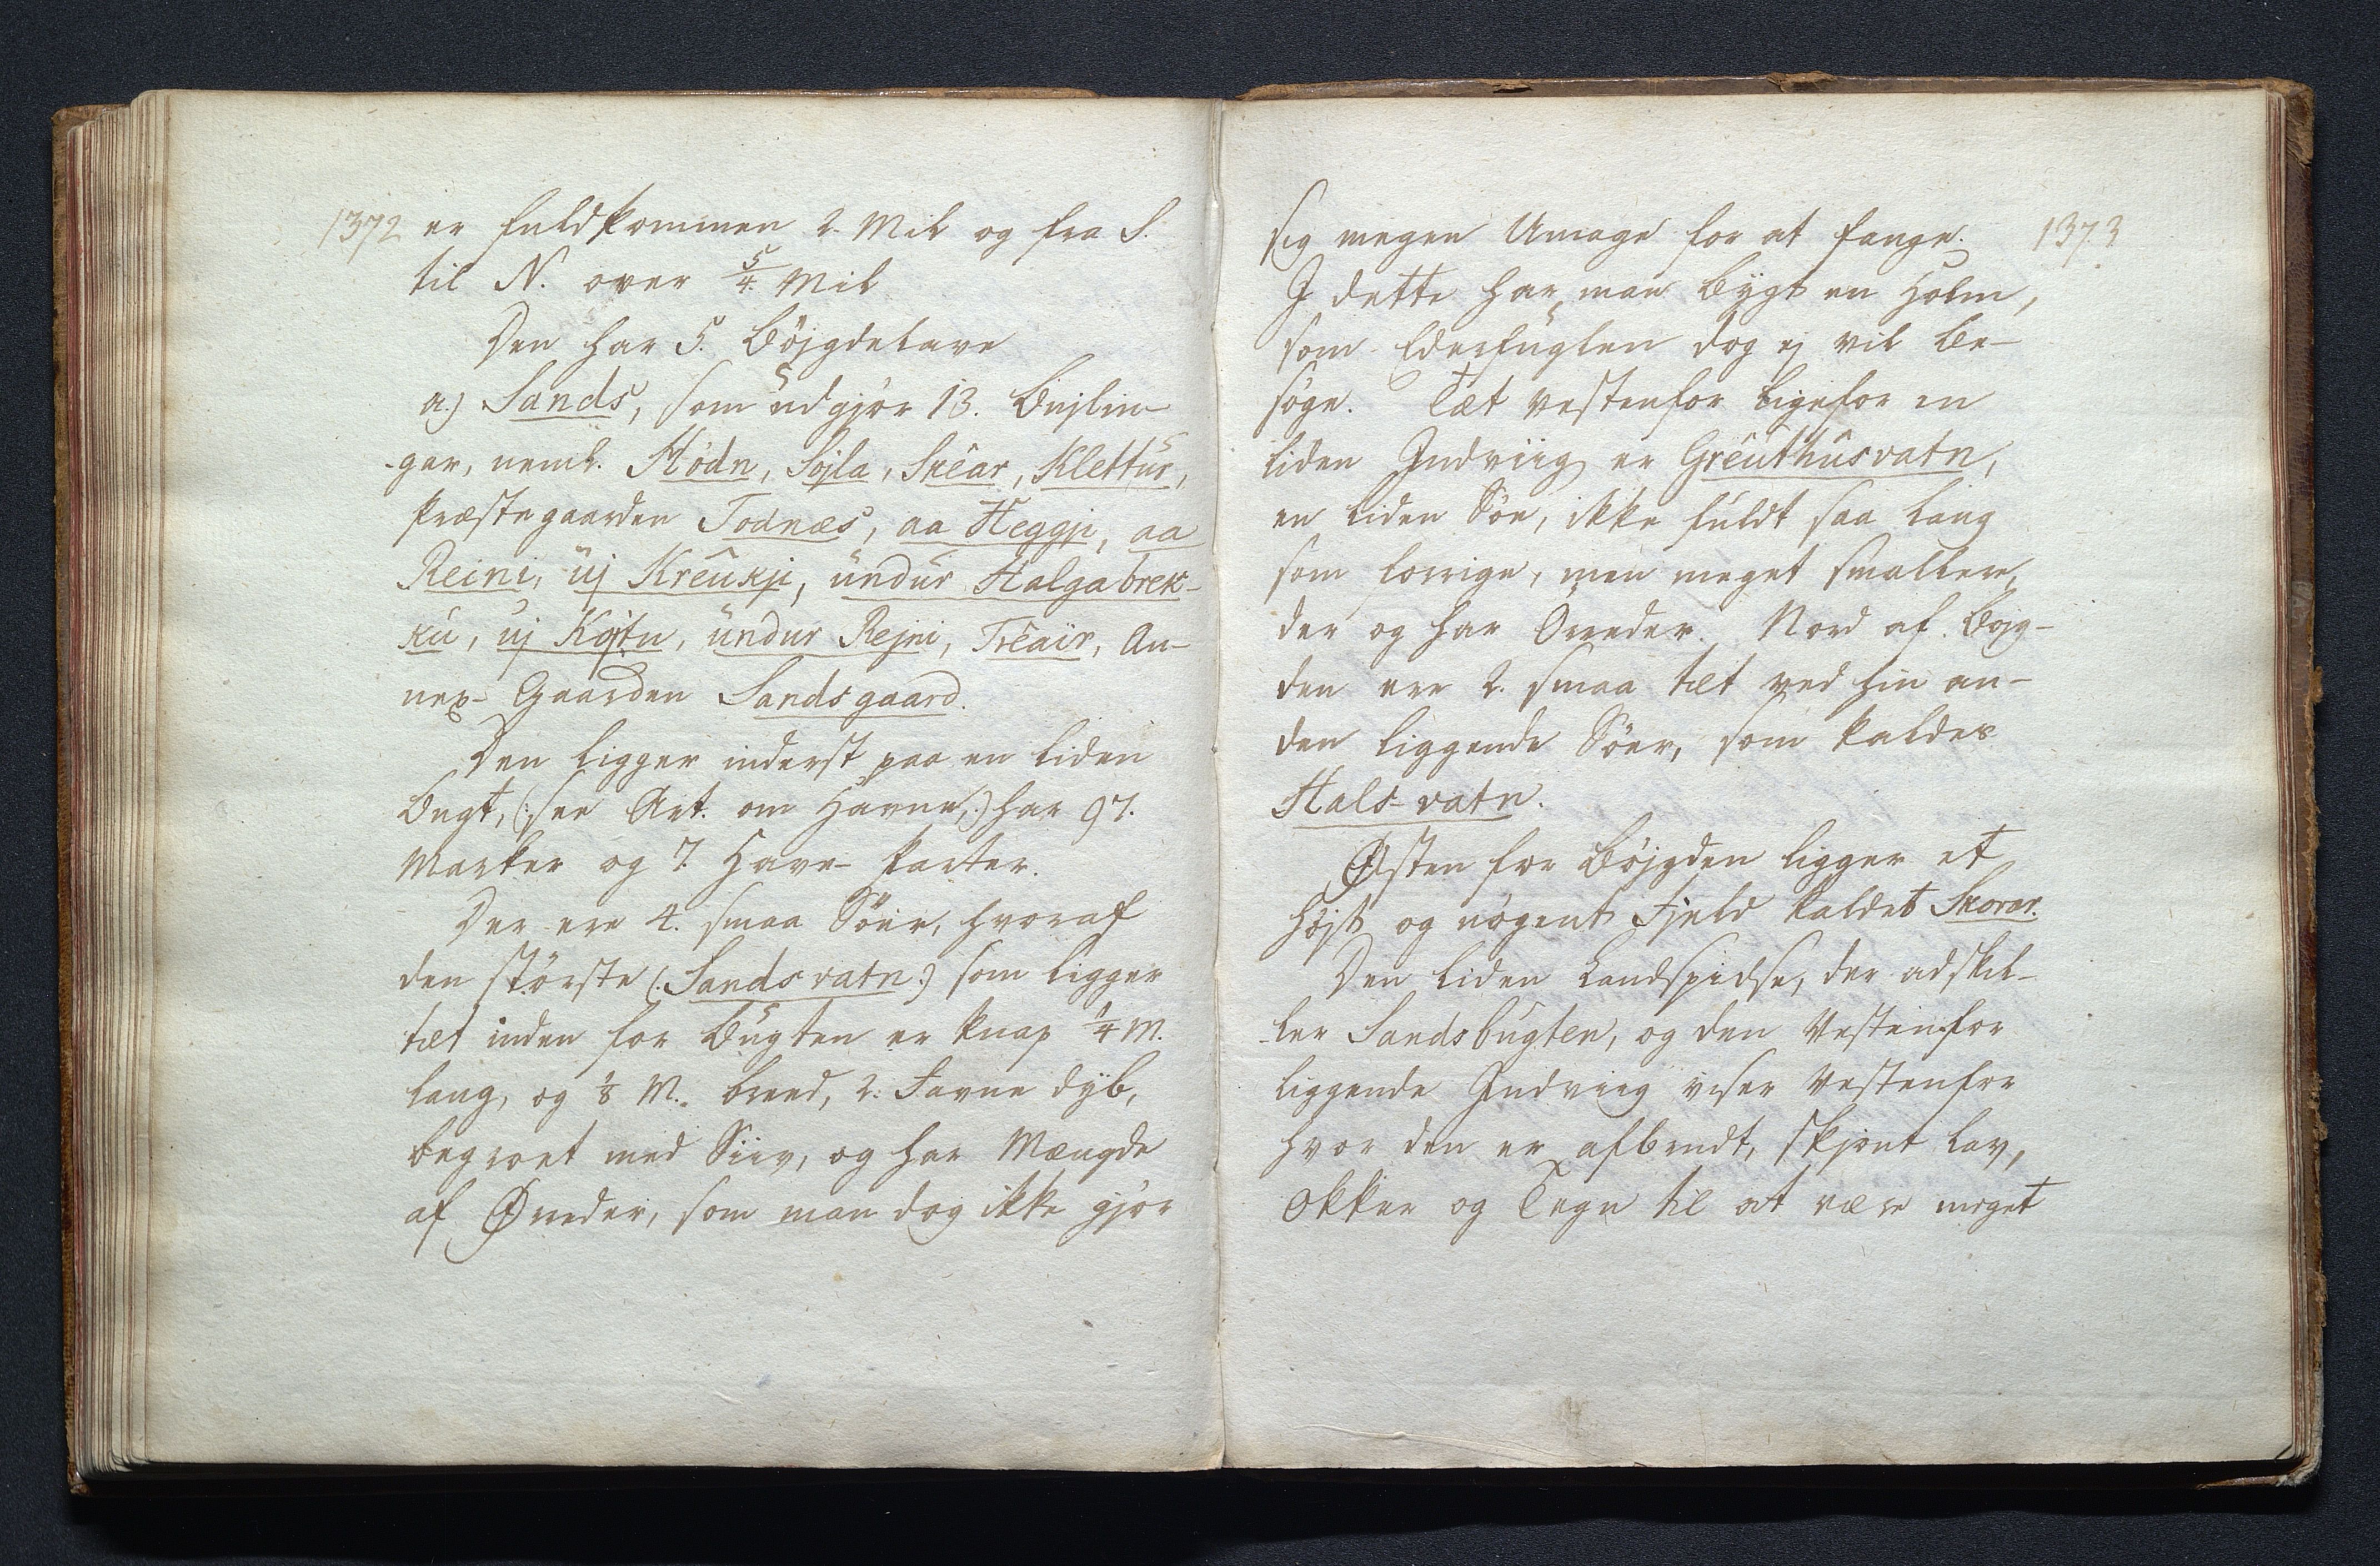 1372 er fuldkommen 2. Mil og fra S.
til N. over 5/4. Mil
Den har 5. Böjgdelave
a.) Sands, som udgjör 13. Bujlin-
-gar, neml. Hödn, Sojla, Skêar, Klettur,
Præstegaarden Todnæs, aa Heggji, aa
Reini, uj Krêukji, undur Halgabrek-
ku, uj Kojtu, undur Rejni, Trêair, An-
nex- Gaarden Sandsgaard.
Den ligger inderst paa en liden
Bugt, (: see Art. om Havne,:) har 97.
Marker og 7. Have- Parter.
Der ere 4. smaa Söer, hvoraf
den störste (: Sandsvatn :) som ligger
tæt inden for Bugten er knap 1/4 M.
lang, og 1/8 M. breed, 2. Favne dyb,
begroet med Siiv, og har Mængde
af Ørreder, som man dog ikke gjör
sig megen Umage for at fange. 1373
I dette har man bygt en Holm,
som Ederfuglen dog ej vil be-
söge. Tæt vestenfor ligefor en
liden Indviig er Grêuthûsvatn,
en liden Söe, ikke fuldt saa lang
som forrige, men meget smallere,
der og har Örreder. Nord af Bojg-
den ere 2. smaa tæt ved hin an-
den liggende Söer, som kaldes
Hals-vatn.
Østen for Böjgden ligger et
höjt og nögent Fjeld kaldet Skorar.
Den liden Landspidse, der adskil-
-ler Sandsbugten, og den Vestenfor
liggende Indviig viser Vestenfor
hvor den er afbrudt, skjönt lav,
Okker og Tegn til at være meget